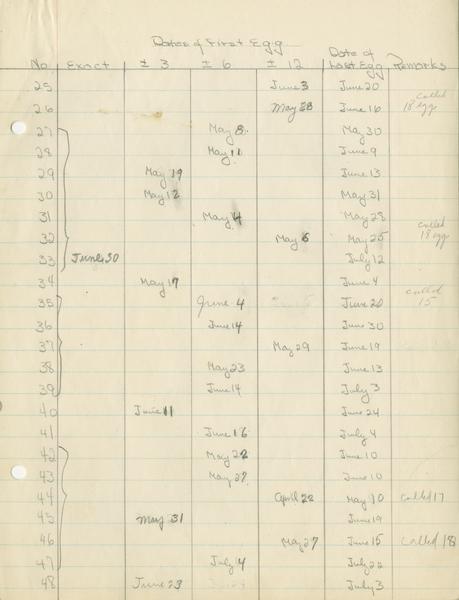 Dates of First Egg
Date of
No. Exact ± 3 ± 6 ± 12 Last Egg Remarks
25 June 3 June 20
26 May 28 June 16 called 18 egg
27 May 8 May 30
28 May 11 June 9
29 May 19 June 13
30 May 12 May 31
31 May 4 May 28
32 May 6 May 25 called 18 egg
33 June 30 July 12
34 May 17 June 4
35 June 4 June 20 called 15
36 June 14 June 30
37 May 29 June 19
38 May 23 June 13
39 June 14 July 3
40 June 11 June 24
41 June 16 July 4
42 May 22 June 10
43 May 27 June 10
44 April 22 May 10 called 17
45 May 31 June 19
46 May 27 June 15 called 18
47 July 4 July 22
48 June 23 July 3